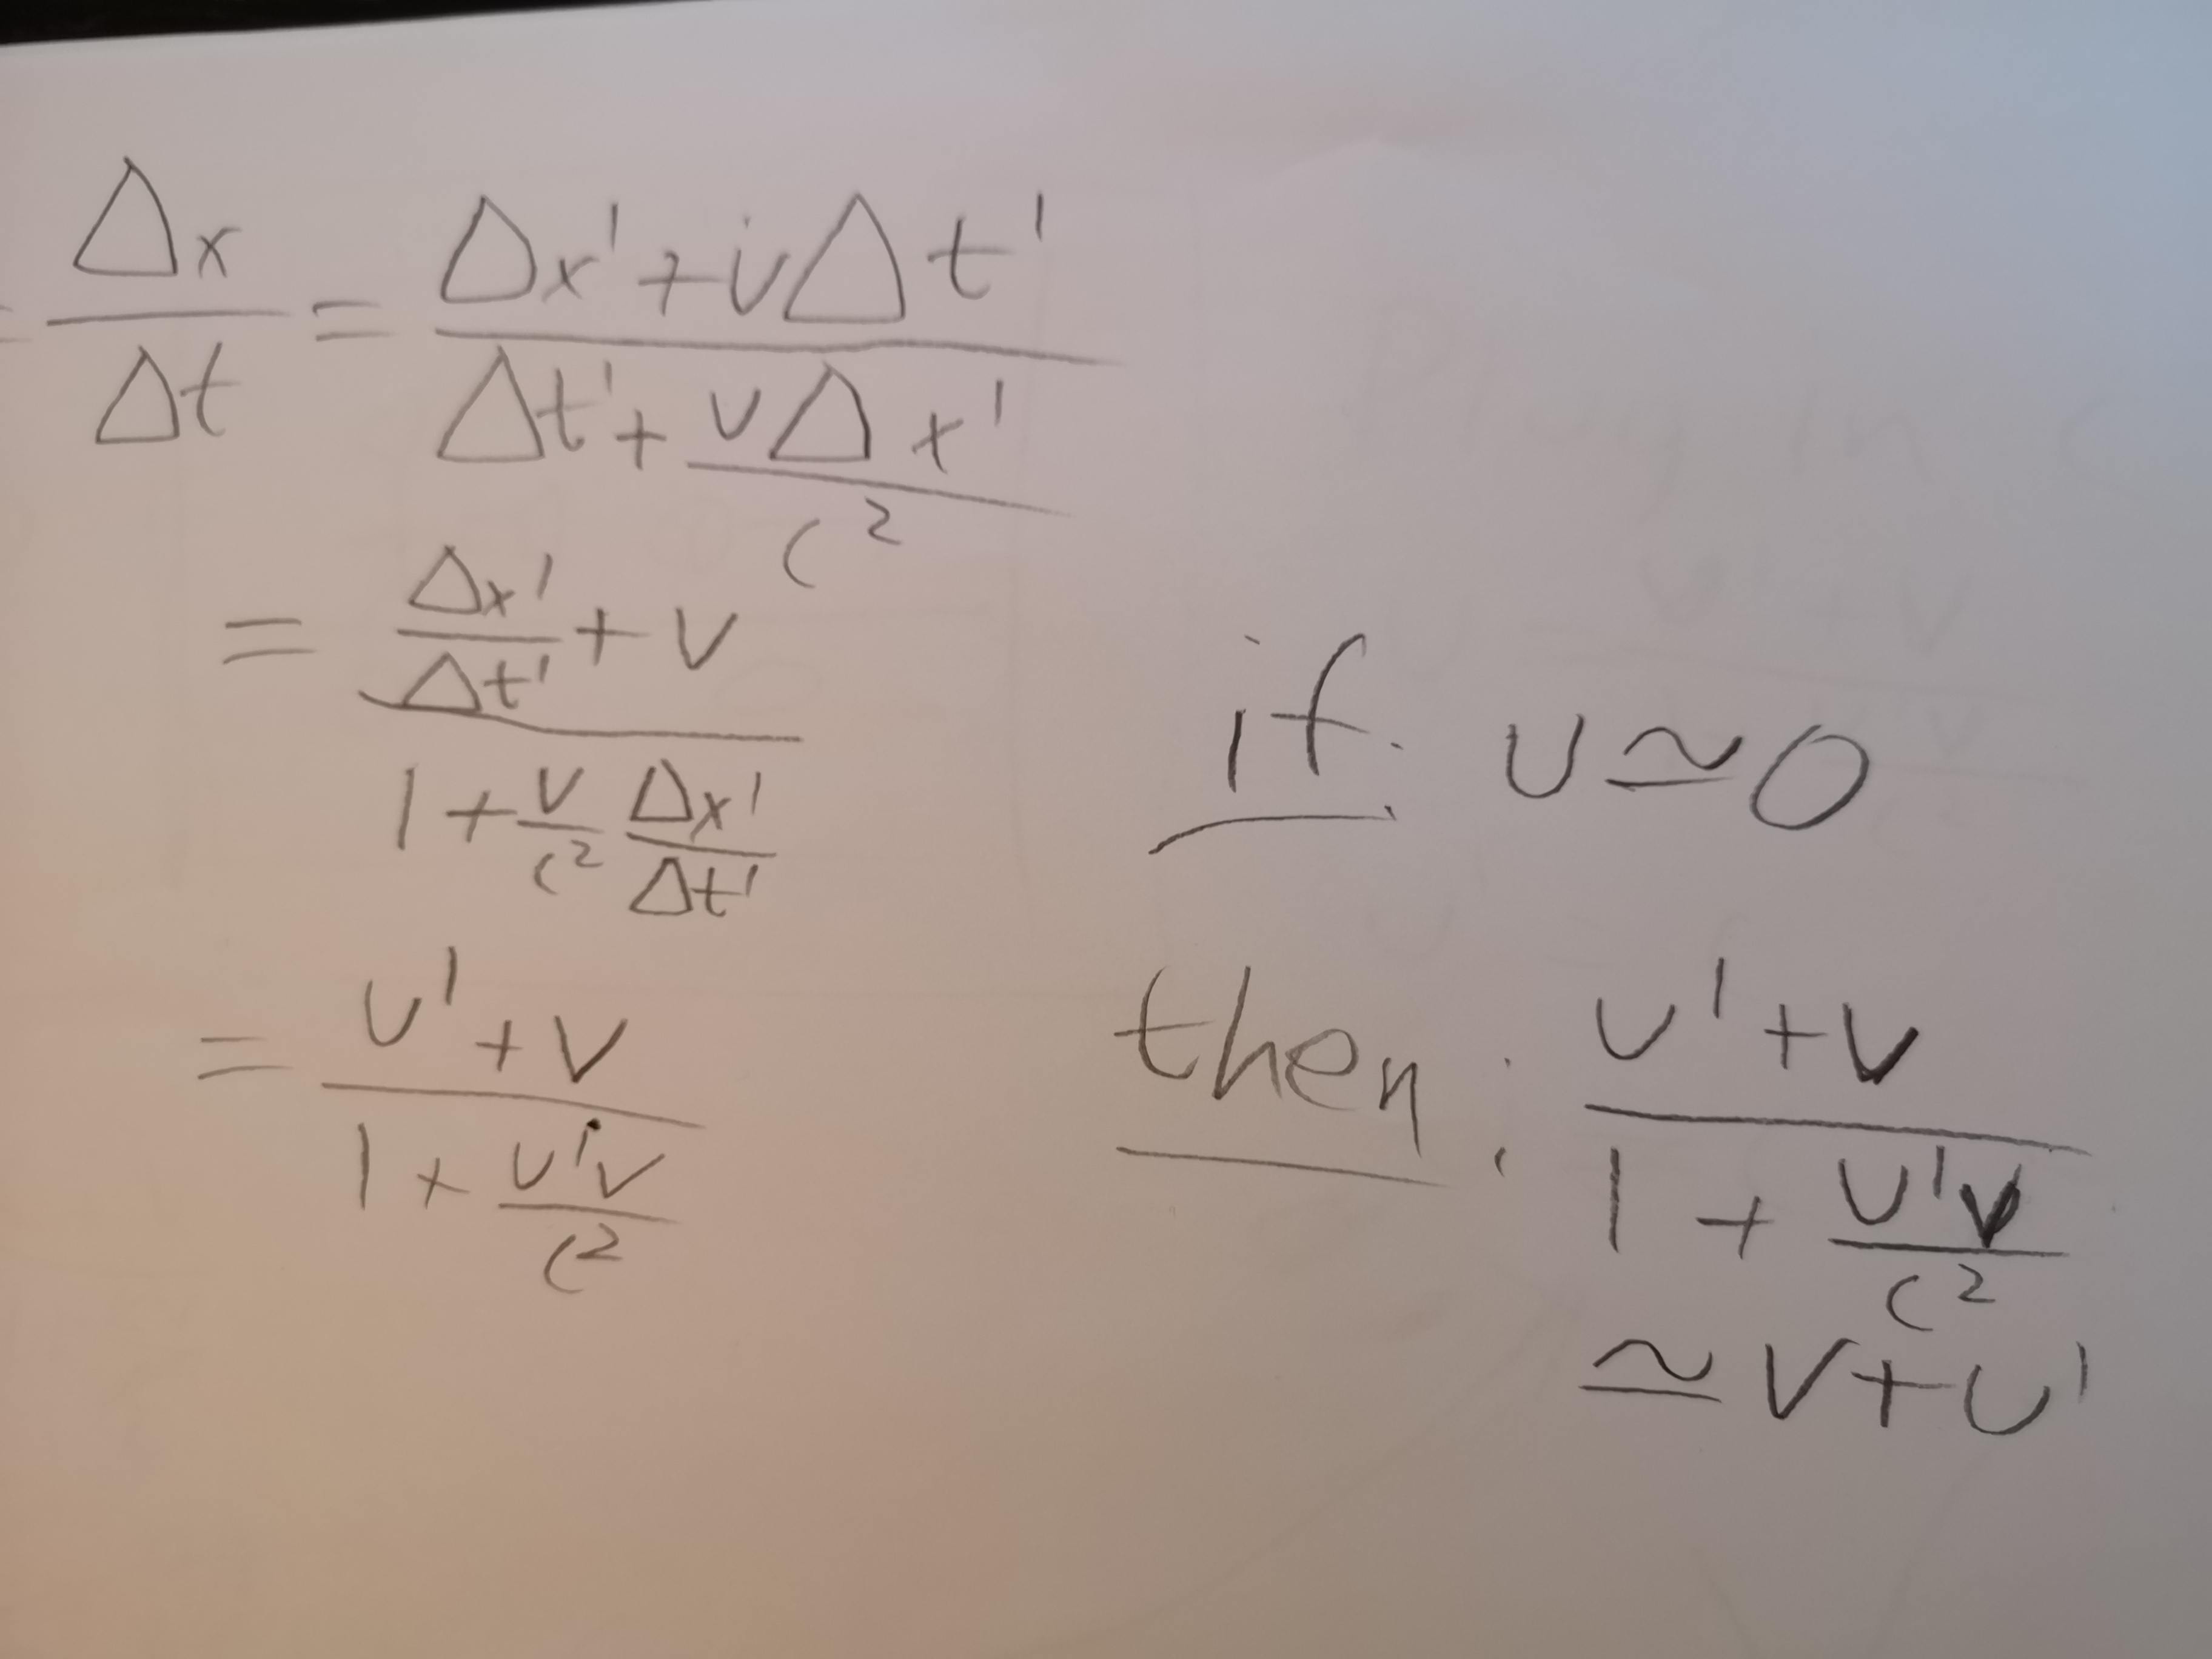 = Δx/Δt = (Δx' + vΔt')/(Δt' + vΔx'/c²)
= (Δx'/Δt' + v)/(1 + v/c² Δx'/Δt')
= (u' + v)/(1 + u'v/c²)
if. u ≃ 0
then: (u' + v)/(1 + u'v/c²)
≃ v + u'